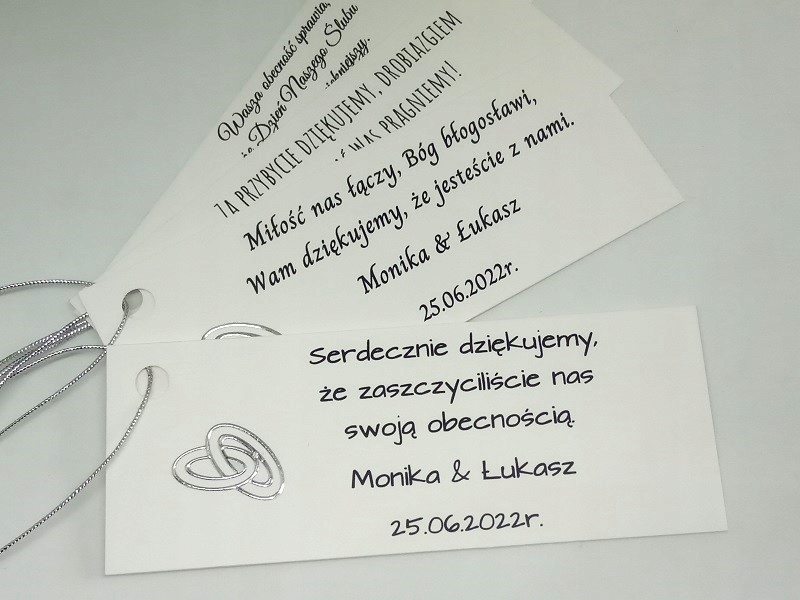 Wasza obecność sprawia,
Dzień Naszego Ślubu
ZA PRZYBYCIE DZIĘKUJEMY, DROBIAZGIEM
WAS PRAGNIEMY!
Miłość nas łączy, Bóg błogosławi,
Wam dziękujemy, że jesteście z nami.
Monika & Łukasz
25.06.2022r.
Serdecznie dziękujemy,
że zaszczyciliście nas
swoją obecnością.
Monika & Łukasz
25.06.2022r.